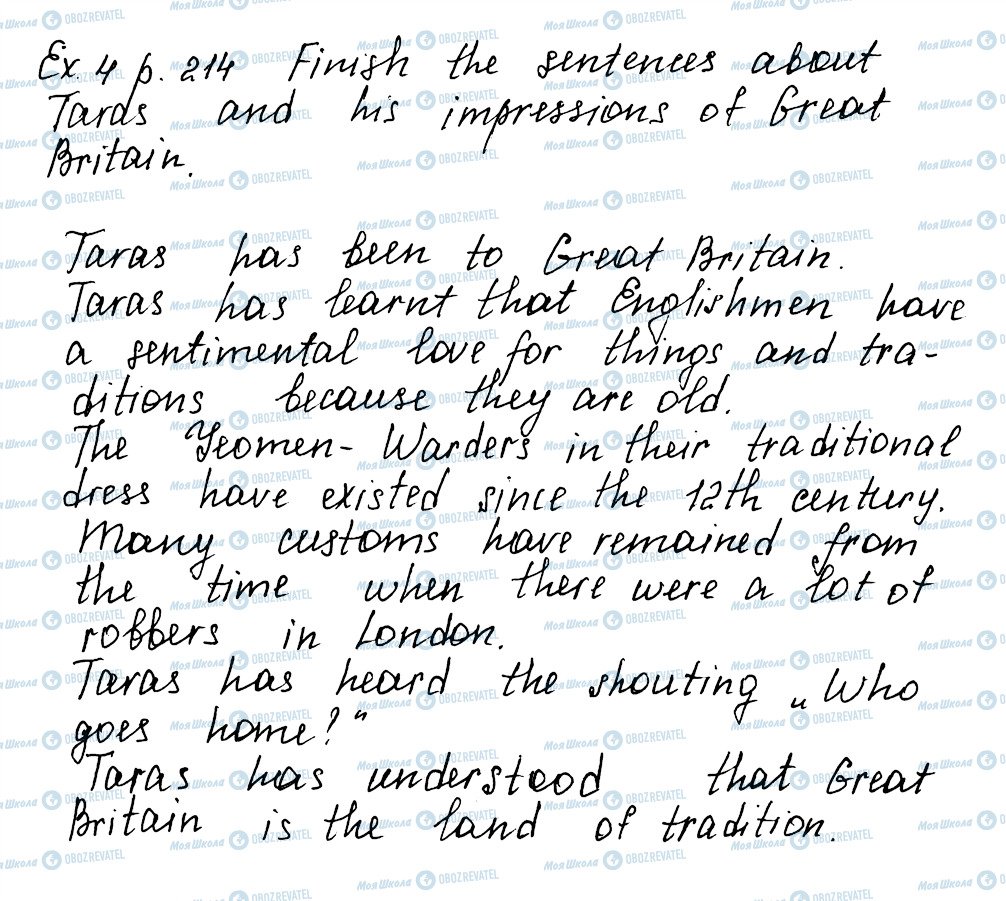 Ex. 4 p. 214 Finish the sentences about
Taras and his impressions of Great
Britain.
Taras has been to Great Britain.
Taras has learnt that Englishmen have
a sentimental love for things and tra-
ditions because they are old.
The Yeomen-Warders in their traditional
dress have existed since the 12th century.
Many customs have remained from
the time when there were a lot of
robbers in London.
Taras has heard the shouting „Who
goes home?“
Taras has understood that Great
Britain is the land of tradition.